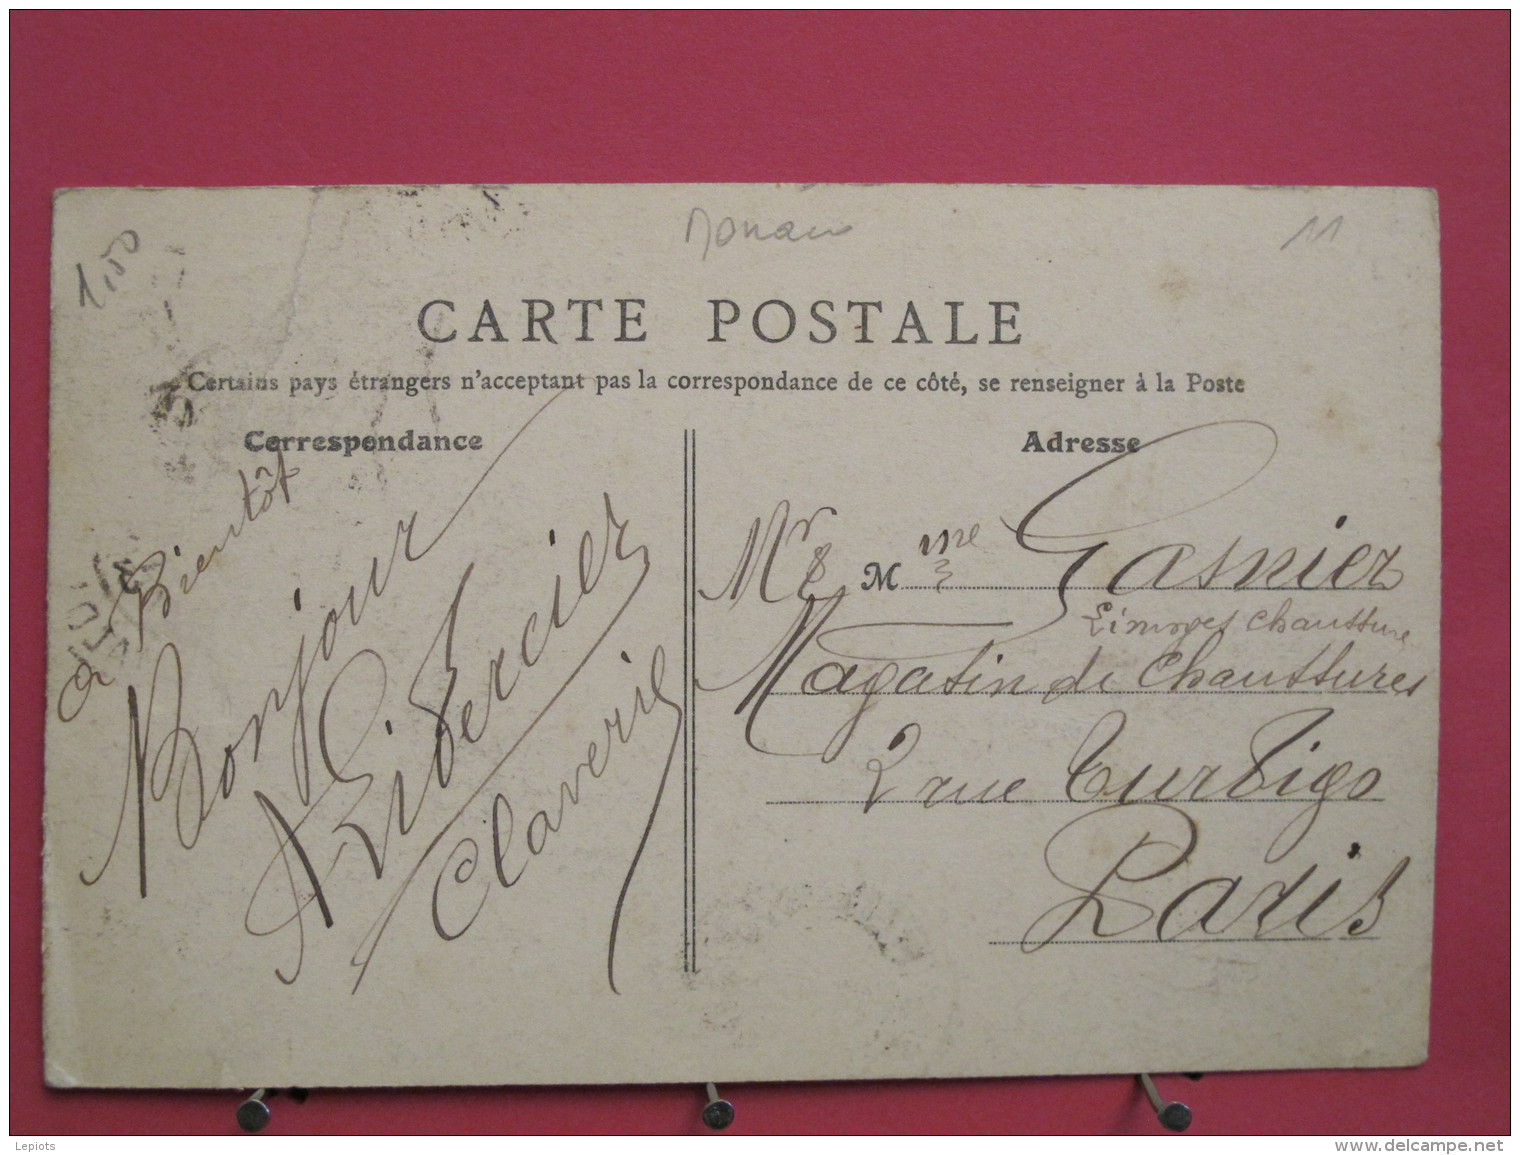 1,50
11
CARTE POSTALE
Certains pays étrangers n'acceptant pas la correspondance de ce côté, se renseigner à la Poste
Correspondance
a Bientôt
Bonjour
Libercier
Claverie
Adresse
Mr & Mme Gasnier
Limoges Chaussure
Magasin de Chaussures
2 rue Turbigo
Paris
Lepiots
www.delcampe.net